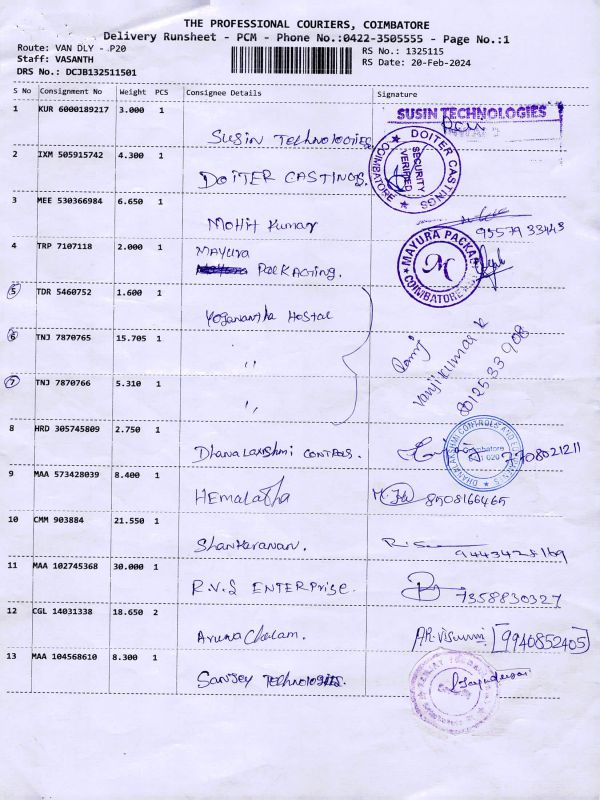 THE PROFESSIONAL COURIERS, COIMBATORE
Delivery Runsheet - PCM - Phone No.:0422-3505555 - Page No.:1
Route: VAN DLY - P20
RS No.: 1325115
Staff: VASANTH
RS Date: 20-Feb-2024
DRS No.: DCJB132511501
S No Consignment No Weight PCS Consignee Details Signature
1 KUR 6000189217 3.000 1 Susin Technologies SUSIN TECHNOLOGIES
2 IXM 505915742 4.300 1 DOITER CASTINGS. DOITER CASTINGS COIMBATORE SECURITY VERIFIED
3 MEE 530366984 6.650 1 Mohit Kumar 95579 33443
4 TRP 7107118 2.000 1 MAYURA PACKAGING. MAYURA PACKAGING COIMBATORE M
5 TDR 5460752 1.600 1 Yoganantha Hostal
6 TNJ 7870765 15.705 1 "
7 TNJ 7870766 5.310 1 " Ramj Vanjikumar K 80125 33 908
8 HRD 305745809 2.750 1 Dhanalakshmi CONTROLS. DHANALAKSHMI CONTROLS AND 7708021211
9 MAA 573428039 8.400 1 HEMALATHA 8508166465
10 CMM 903884 21.550 1 Shankaranan. 9443428169
11 MAA 102745368 30.000 1 R.V.S ENTERPRISE. 7358830327
12 CGL 14031338 18.650 2 Arunachalam. AR.Visunni [9940852405]
13 MAA 104568610 8.300 1 Sanjey Technologies.